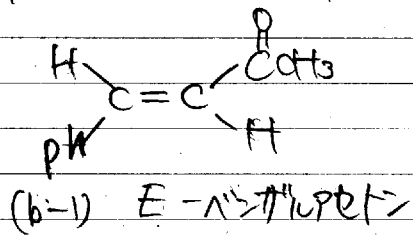 O
H CCH3
C=C
Ph H
(b-1) E-ベンザルアセトン